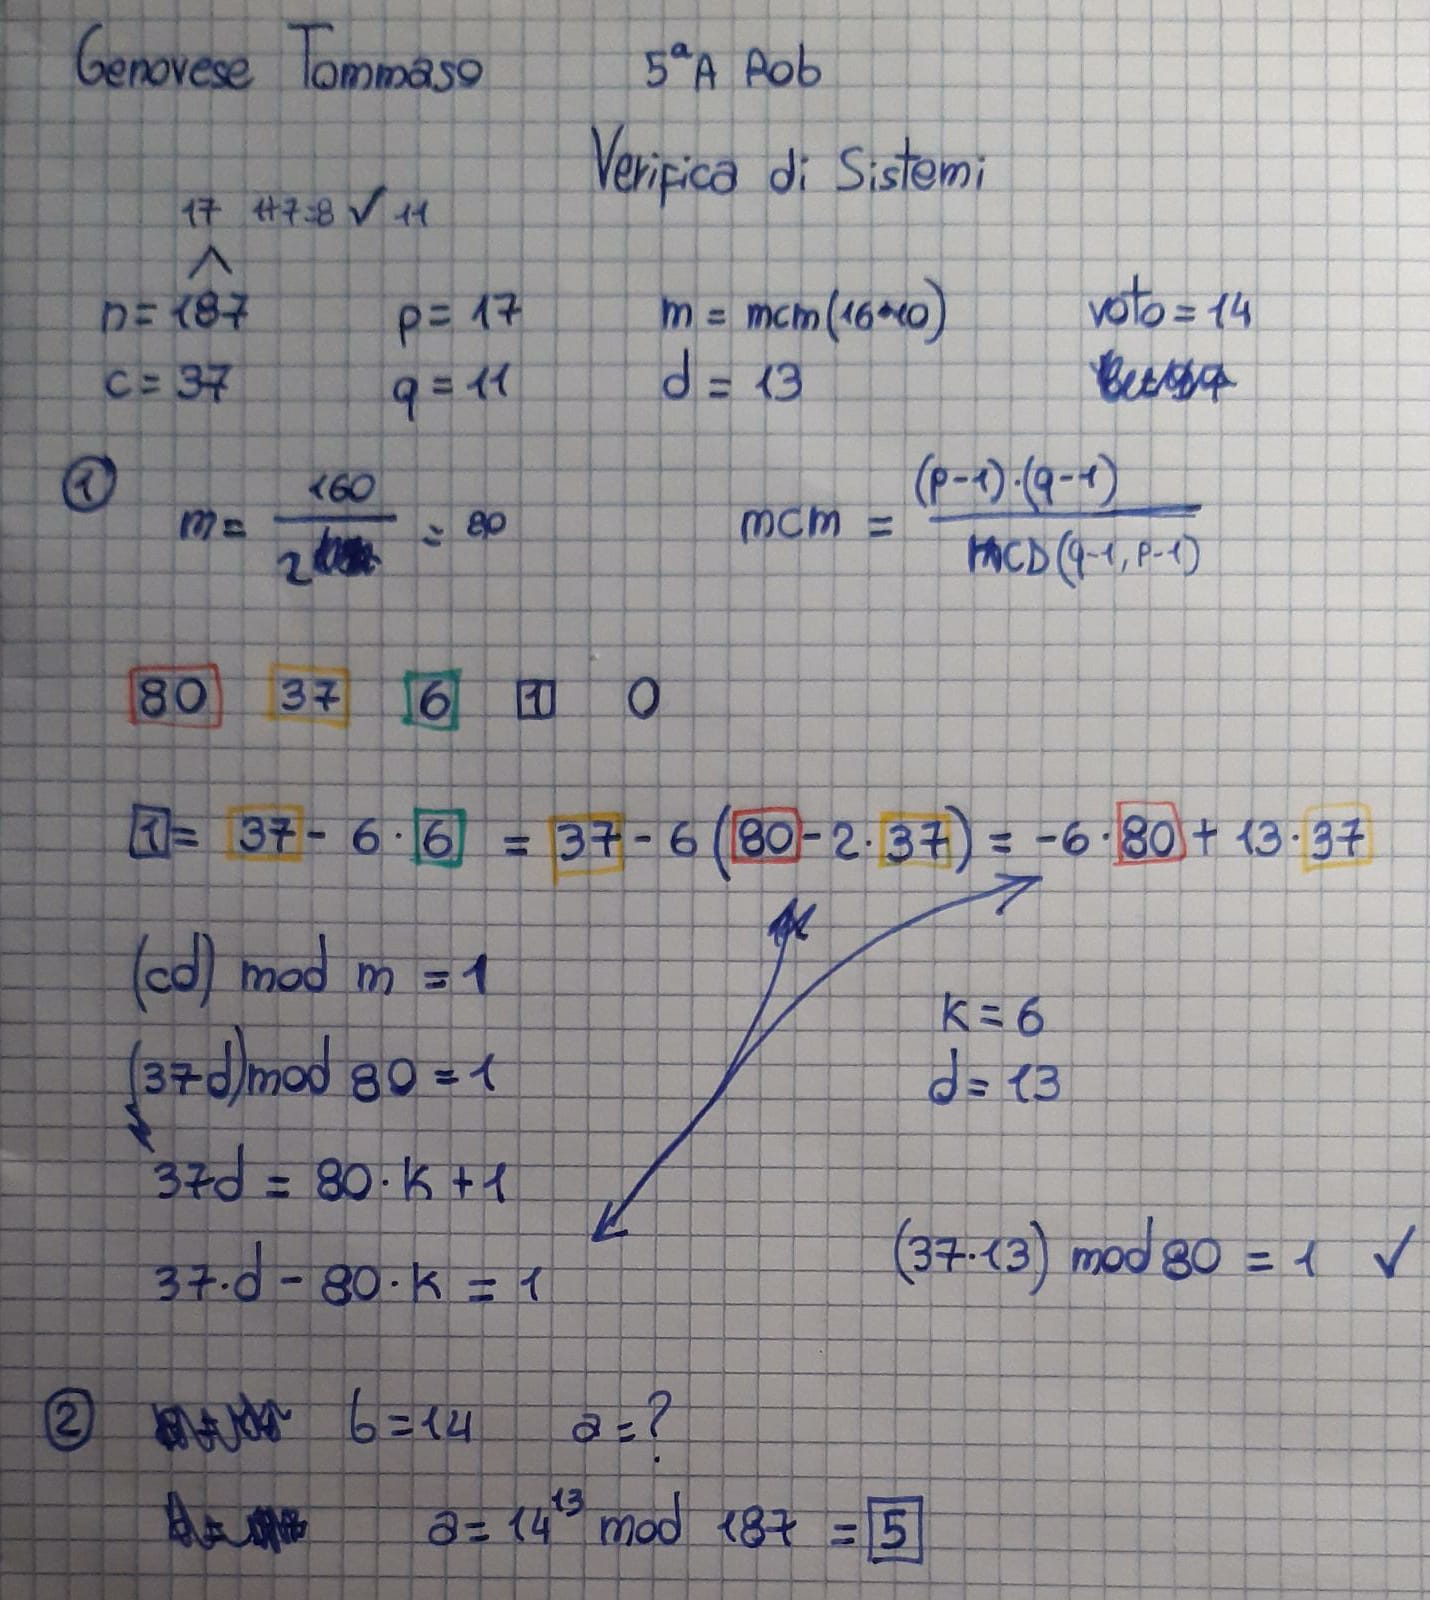 Genovese Tommaso 5ªA Rob
Verifica di Sistemi
17 1+7=8 ✓ 11
n = 187 p = 17 m = mcm(16•10) voto = 14
c = 37 q = 11 d = 13
① m = 160/2 = 80 mcm = (p-1)·(q-1)/MCD(q-1, p-1)
80 37 6 1 0
1 = 37 - 6 · 6 = 37 - 6 (80 - 2 · 37) = -6 · 80 + 13 · 37
(cd) mod m = 1
k = 6
(37d) mod 80 = 1
d = 13
37d = 80 · k + 1
(37·13) mod 80 = 1 ✓
37·d - 80·k = 1
② b = 14 a = ?
a = 14¹³ mod 187 = 5